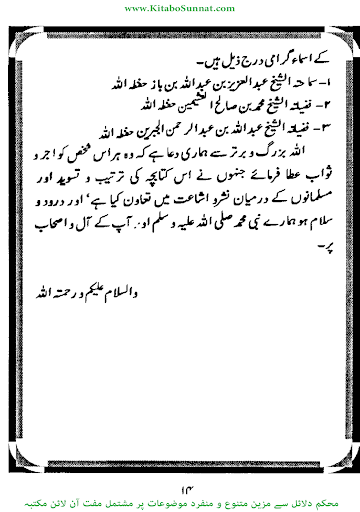 www.KitaboSunnat.com
کے اسماء گرامی درج ذیل ہیں۔
۱- سماحتہ الشیخ عبدالعزیز بن عبداللہ بن باز حفظہ اللہ
۲- فضیلتہ الشیخ محمد بن صالح العثیمین حفظہ اللہ
۳- فضیلتہ الشیخ عبداللہ بن عبدالرحمن الجبرین حفظہ اللہ
اللہ بزرگ و برتر سے ہماری دعا ہے کہ وہ ہر اس شخص کو اجر و
ثواب عطا فرمائے جنہوں نے اس کتابچہ کی ترتیب و تسوید اور
مسلمانوں کے درمیان نشرو اشاعت میں تعاون کیا ہے' اور درود و
سلام ہو ہمارے نبی محمد صلی اللہ علیہ و سلم اور آپ کے آل و اصحاب
پر۔
والسلام علیکم و رحمتہ اللہ
۱۴
محکم دلائل سے مزین متنوع و منفرد موضوعات پر مشتمل مفت آن لائن مکتبہ